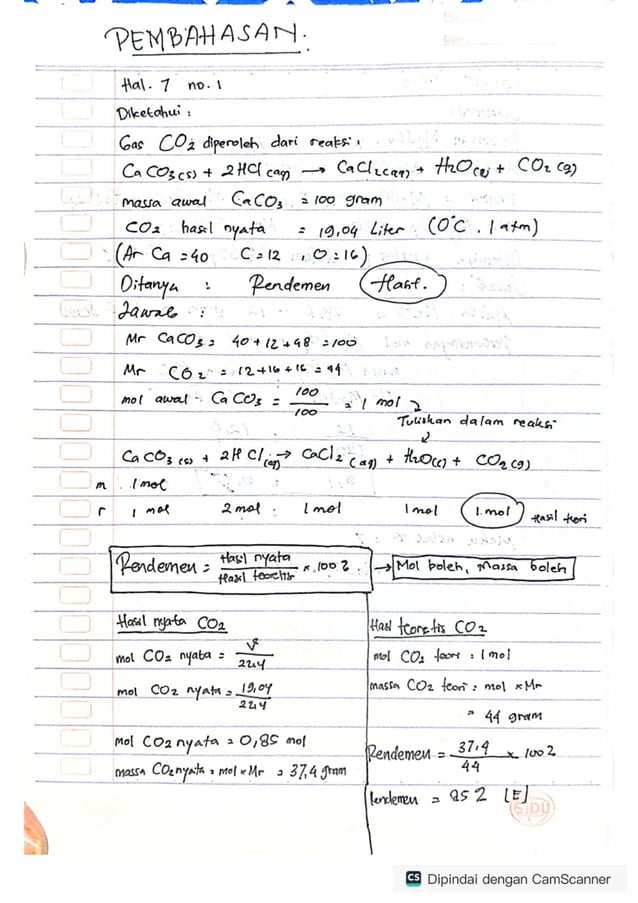 PEMBAHASAN.
Hal. 7 no. 1
Diketahui :
Gas CO2 diperoleh dari reaksi,
CaCO3(s) + 2HCl(aq) → CaCl2(aq) + H2O(l) + CO2(g)
massa awal CaCO3 = 100 gram
CO2 hasil nyata = 19,04 Liter (0°C, 1 atm)
(Ar Ca = 40 C = 12 , O = 16)
Ditanya : Rendemen Hasil.
Jawab :
Mr CaCO3 = 40 + 12 + 48 = 100
Mr CO2 = 12 + 16 + 16 = 44
mol awal CaCO3 = 100/100 = 1 mol
Tuliskan dalam reaksi
CaCO3(s) + 2HCl(aq) → CaCl2(aq) + H2O(l) + CO2(g)
m 1 mol
r 1 mol 2 mol 1 mol 1 mol 1 mol Hasil teori
Rendemen = Hasil nyata/Hasil teoritis × 100% → Mol boleh, Massa boleh
Hasil nyata CO2
mol CO2 nyata = V/22,4
mol CO2 nyata = 19,04/22,4
mol CO2 nyata = 0,85 mol
massa CO2 nyata = mol × Mr = 37,4 gram
Hasil teoretis CO2
mol CO2 teori = 1 mol
massa CO2 teori = mol × Mr
= 44 gram
Rendemen = 37,4/44 × 100%
Rendemen = 85% [E]
SIDU
CS Dipindai dengan CamScanner